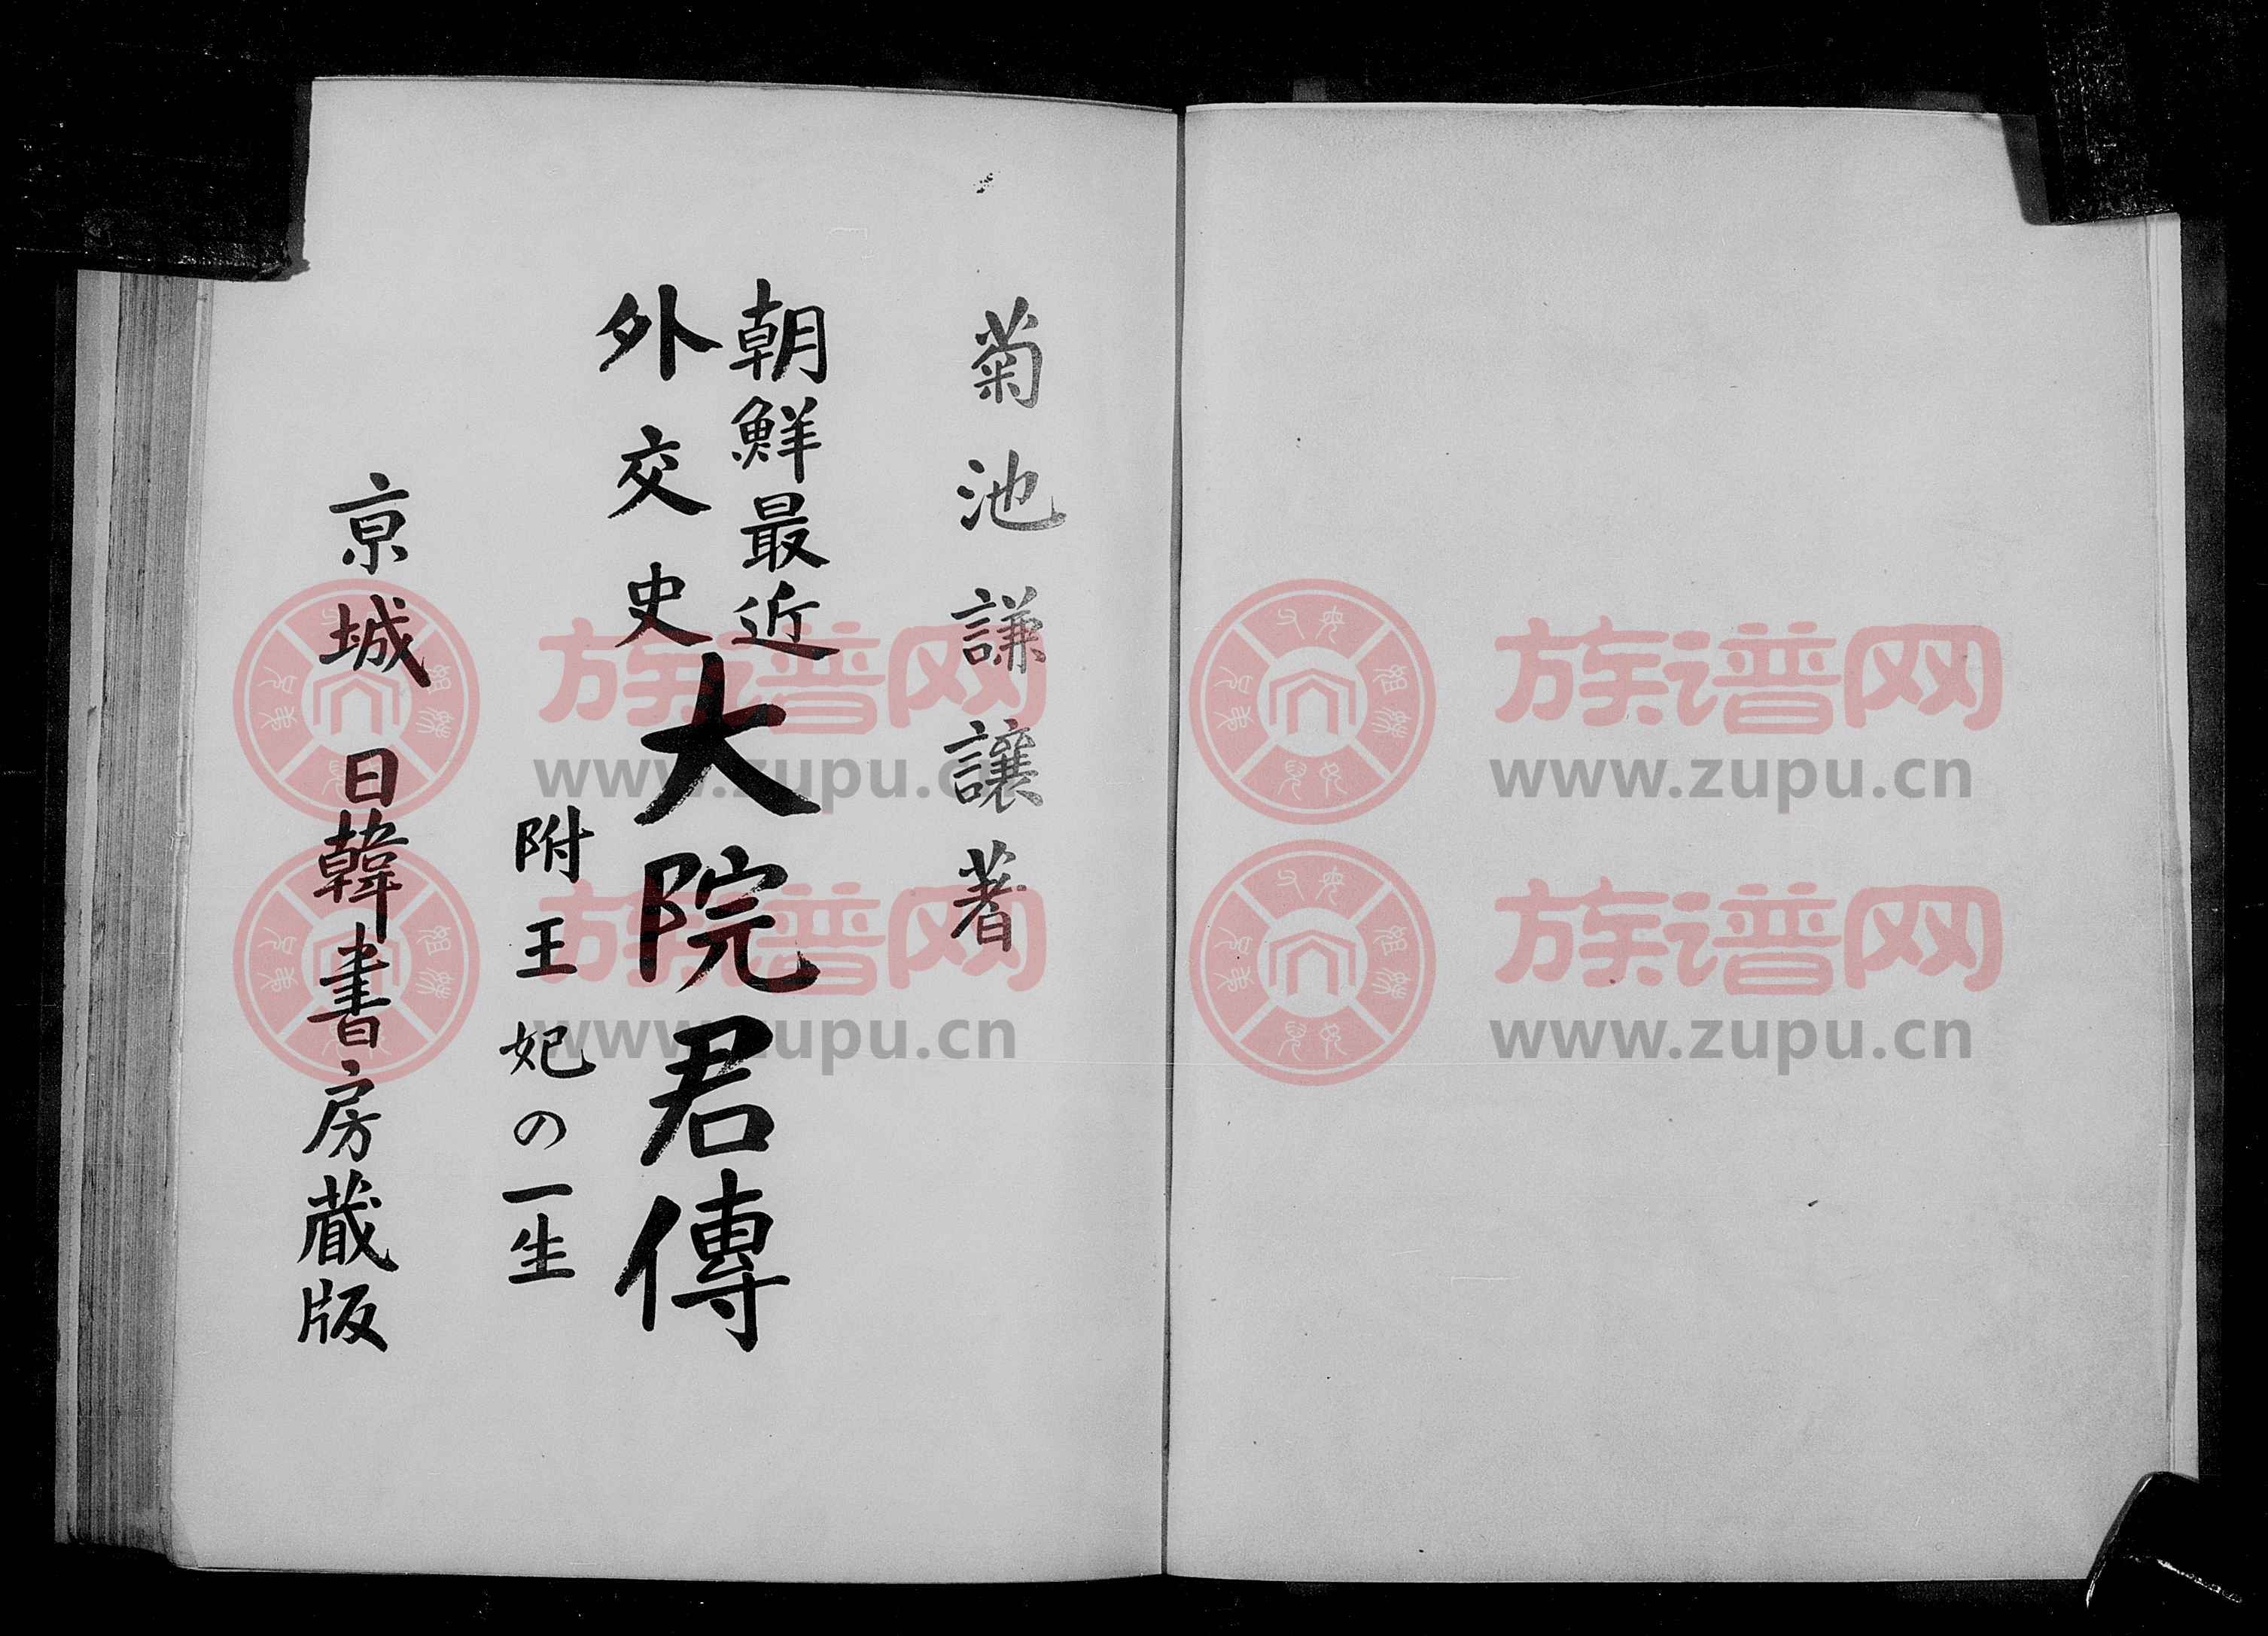 菊池謙讓著
朝鮮最近
外交史
大院君傳
附王妃の一生
京城 日韓書房蔵版
族谱网
www.zupu.cn
族谱网
www.zupu.cn
族谱网
www.zupu.cn
族谱网
www.zupu.cn